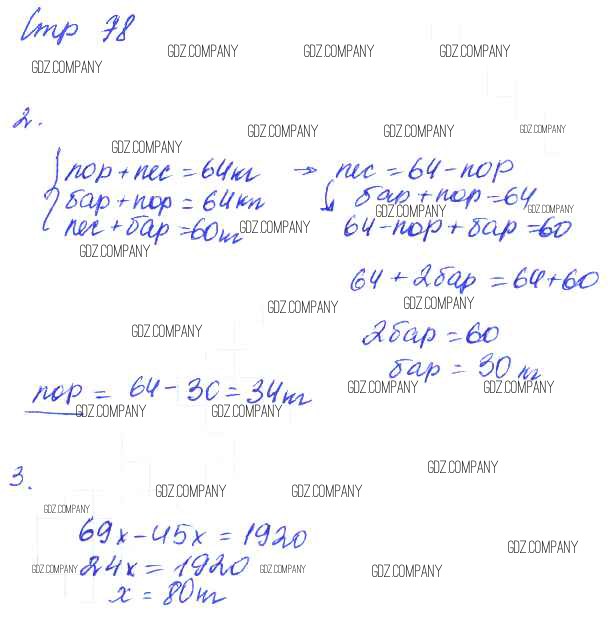 Стр 78
GDZ.COMPANY GDZ.COMPANY GDZ.COMPANY
GDZ.COMPANY
2.
GDZ.COMPANY GDZ.COMPANY GDZ.COMPANY
GDZ.COMPANY
пор + пес = 64кг → пес = 64 - пор
бар + пор = 64кг бар + пор = 64
GDZ.COMPANY GDZ.COMPANY
пес + бар = 60кг GDZ.COMPANY 64 - пор + бар = 60
GDZ.COMPANY
64 + 2бар = 64+60
GDZ.COMPANY GDZ.COMPANY
GDZ.COMPANY 2бар = 60
бар = 30 кг
GDZ.COMPANY GDZ.COMPANY
пор = 64 - 30 = 34кг
GDZ.COMPANY GDZ.COMPANY
3.
GDZ.COMPANY
GDZ.COMPANY GDZ.COMPANY
GDZ.COMPANY
69x - 45x = 1920
GDZ.COMPANY
24x = 1920
GDZ.COMPANY GDZ.COMPANY GDZ.COMPANY
x = 80кг